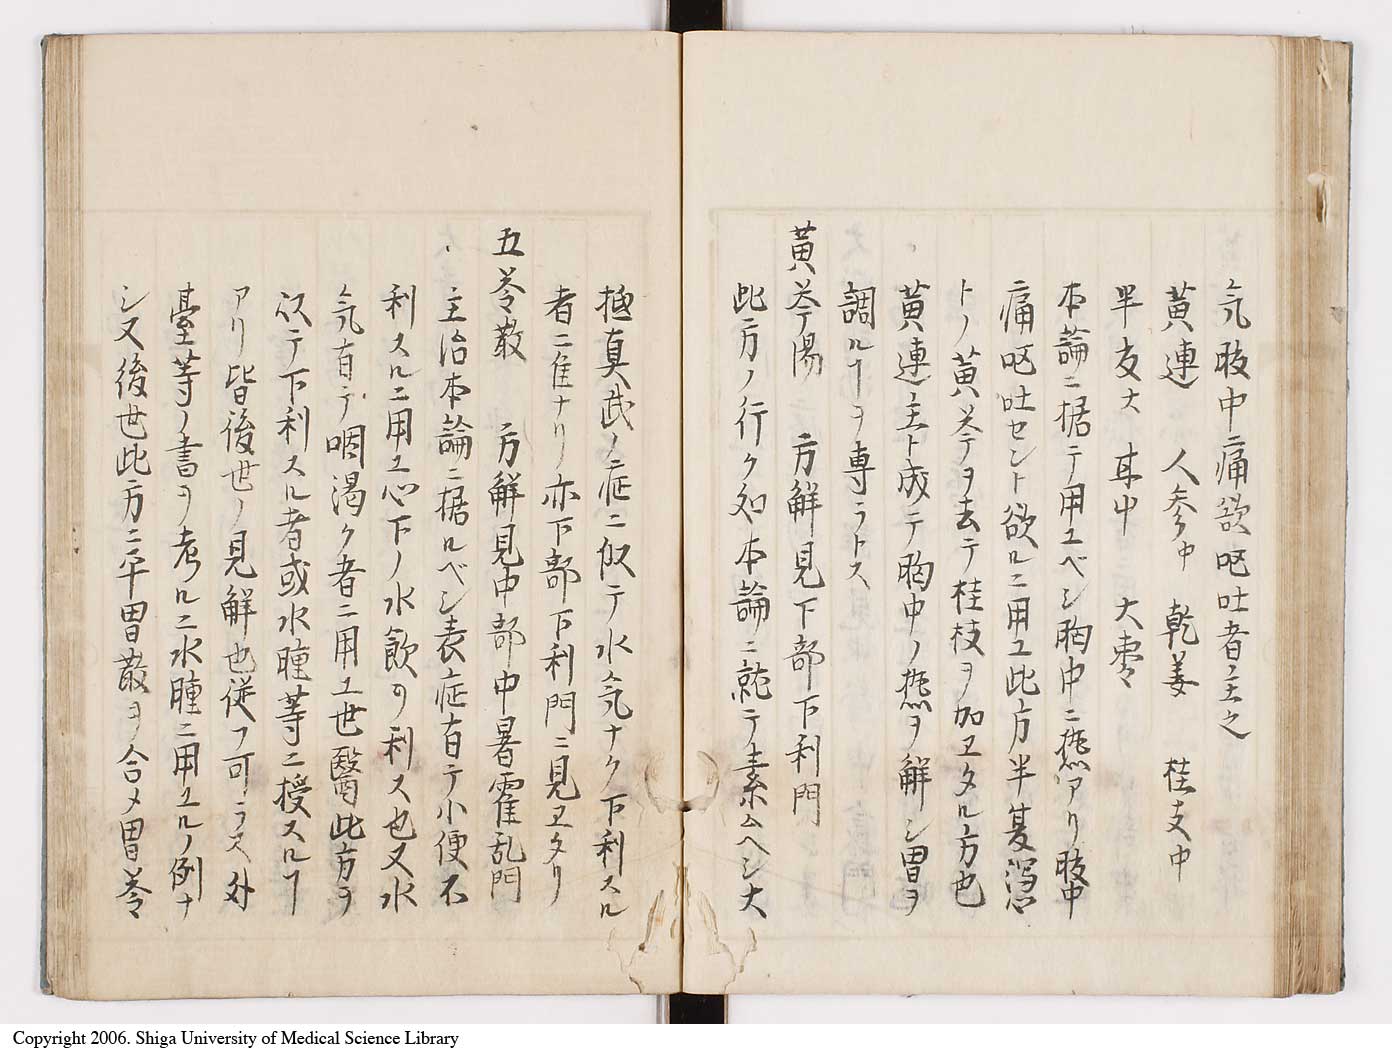 気肢中痛欲呕吐者主之
黄連 人参中 乾姜 桂支中
半夊大 耳中 大枣
本論ニ据テ用ユベシ胸中ニ熱アリ肢中
痛呕吐セント欲ルニ用ユ此方半夏瀉心
トノ黄芩ヲ去テ桂枝ヲ加ヱタル方也
黄連主ト成テ胸中ノ熱ヲ解シ胃ヲ
調ルヿヲ専ラトス
黄芩陽 方解見下部下利門
此方ノ行ク処本論ニ就テ素ムヘシ大
抵真武ノ症ニ似テ水気ナク下利スル
者ニ隹ナリ亦下部下利門ニ見ヱタリ
五苓散 方解見中部中暑霍乱門
主治本論ニ据ルベシ表症有テ小便不
利スルニ用ユ心下ノ水飲ヲ利ス也又水
気有テ咽渇ク者ニ用ユ世醫此方ヲ
以テ下利スル者或水腫等ニ授スルヿ
アリ皆後世ノ見解也従フ可ラス外
臺等ノ書ヲ考ルニ水腫ニ用ユルノ例ナ
シ又後世此方ニ平胃散ヲ合メ胃苓
Copyright 2006. Shiga University of Medical Science Library